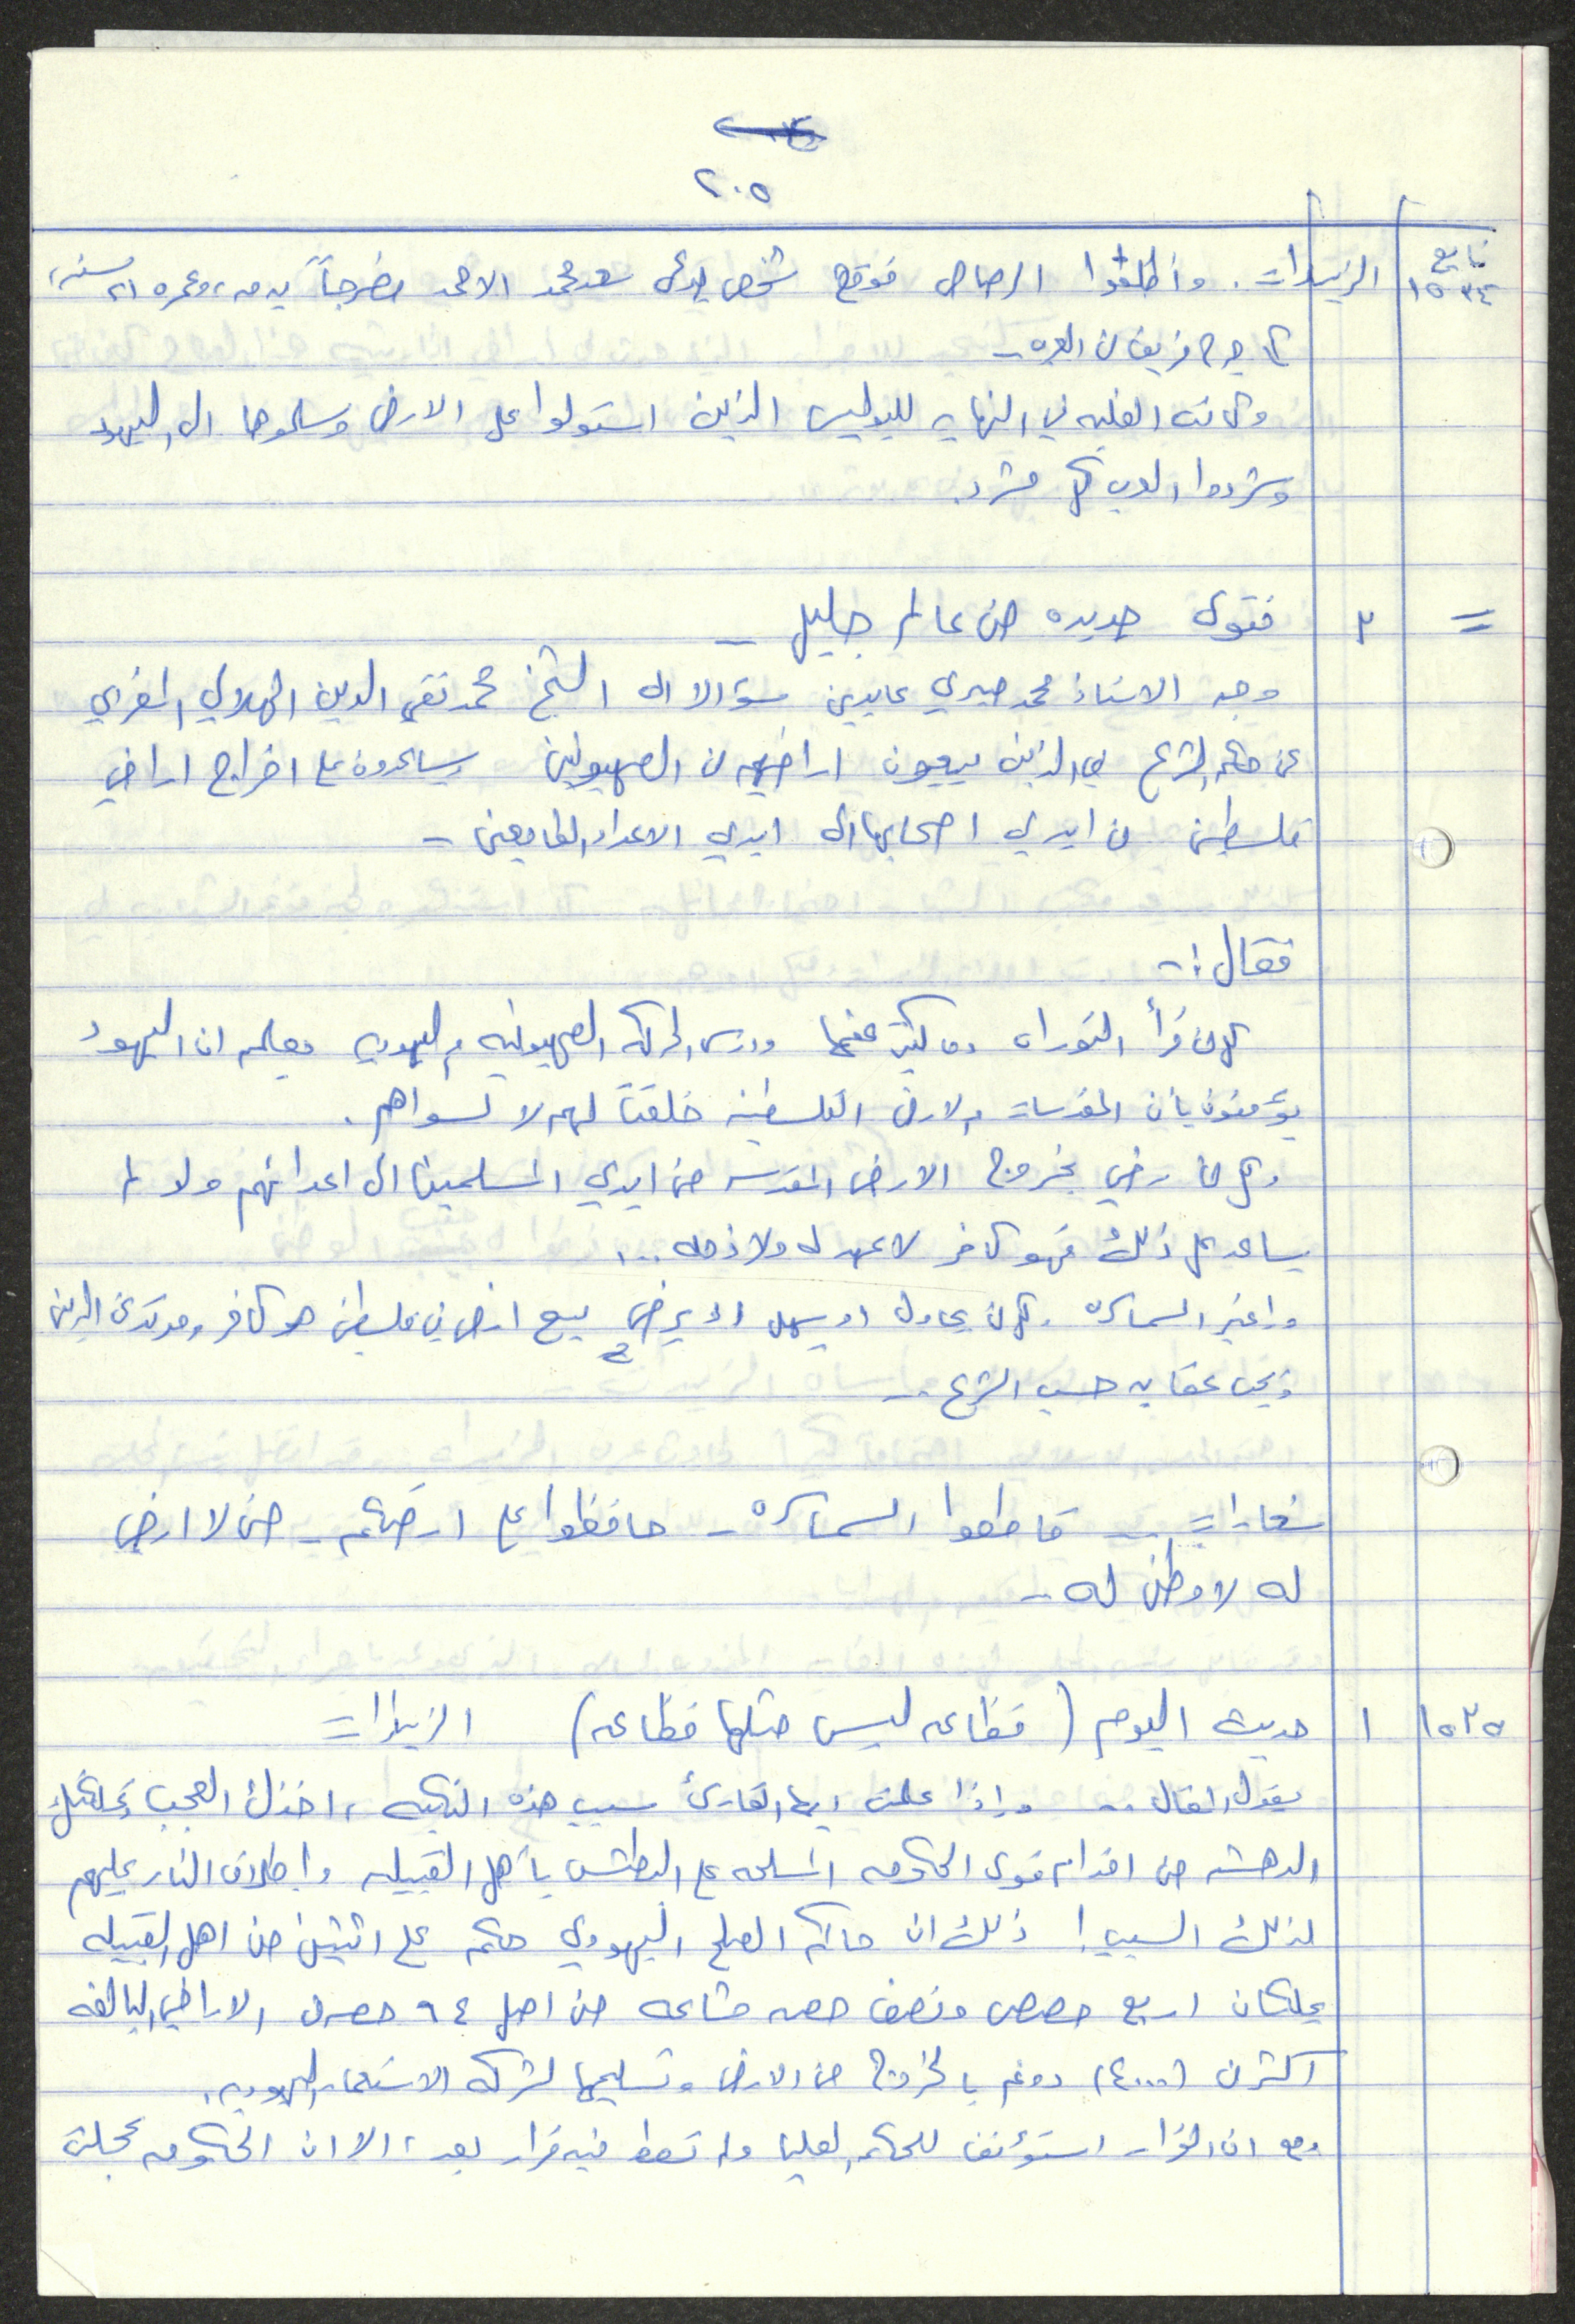 ٢٠٥
تابع ١٥٣٤ الزبيدات. واطلقوا الرصاص فوقع شخص يدعى سعد محمد الاحمد مضرجاً بدمه، وعمره ٢١ سنه،
كما جرح فريق من العرب -
وكانت الغلبه في النهايه للبوليس الذين استولوا على الارض وسلموها الى اليهود
وشردوا العرب كل مشرد.
= ٣ فتوى جديده من عالم جليل -
وجه الاستاذ محمد صبري عابدين سؤالا الى الشيخ محمد تقي الدين الهلالي المغربي
عن حكم الشرع في الذين يبيعون اراضيهم من الصهيونيين ويساعدون على اخراج اراضي
فلسطين من ايدي اصحابها الى ايدي الاعداء الطامعين -
فقال :-
كل من قرأ التوراه وما كتب عنها ودرس الحركه الصهيونيه واليهوديه يعلم ان اليهود
يؤمنون بأن المقدسات والارض الفلسطينيه خلقت لهم لا لسواهم.
وكل من رضي بخروج الارض المقدسه من ايدي المسلمين الى اعدائهم ولو لم
يساعد على ذلك فهو كافر لا عهد له ولا ذمه ...
واعتبر السماسره وكل من يحاول او يسهل او يرضى ببيع ارض في فلسطين هو كافر ومرتد عن الدين
ويجب عقابه حسب الشرع -
شعارات -- قاطعوا السماسره - حافظوا على ارضكم - من لا ارض
له لا وطن له -
١٥٣٥ ١ حديث اليوم (فظاعه ليس مثلها فظاعه) الزبيدات
يقول المقال .. واذا علمت ايها القارئ سبب هذه النكبه، اخذك العجب وتملكتك
الدهشه من اقدام قوى الحكومه المسلحه على البطش بأهل القبيله واطلاق النار عليهم
لذلك السبب! ذلك ان حاكم الصلح اليهودي حكم على اثنين من اهل القبيله
يملكان اربع حصص ونصف حصه مشاعه من اصل ٩٤ حصه من الاراضي البالغه
اكثر من (٤٠٠٠) دونم بالخروج من الارض وتسليمها لشركه الاستعمار اليهوديه.
ومع ان القرار استؤنف للمحكمه العليا ولم تعط فيه قرار بعد، الا ان الحكومه عجلت